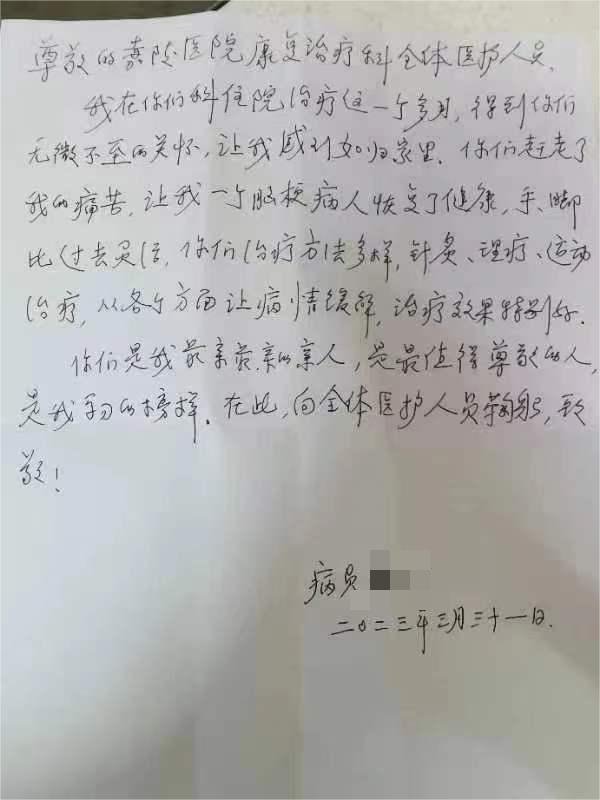 尊敬的嘉陵医院康复治疗科全体医护人员.
我在你们科住院治疗住一个多月, 得到你们
无微不至的关怀, 让我感到如归家里. 你们赶走了
我的痛苦, 让我一个脑梗病人恢复了健康, 手、脚
比过去灵活, 你们治疗方法多样, 针灸、理疗、运动
治疗, 从各个方面让病情缓解, 治疗效果特别好.
你们是我最亲最亲的亲人, 是最值得尊敬的人,
是我学习的榜样. 在此, 向全体医护人员鞠躬, 致
敬!
病员
二0二三年三月三十一日.